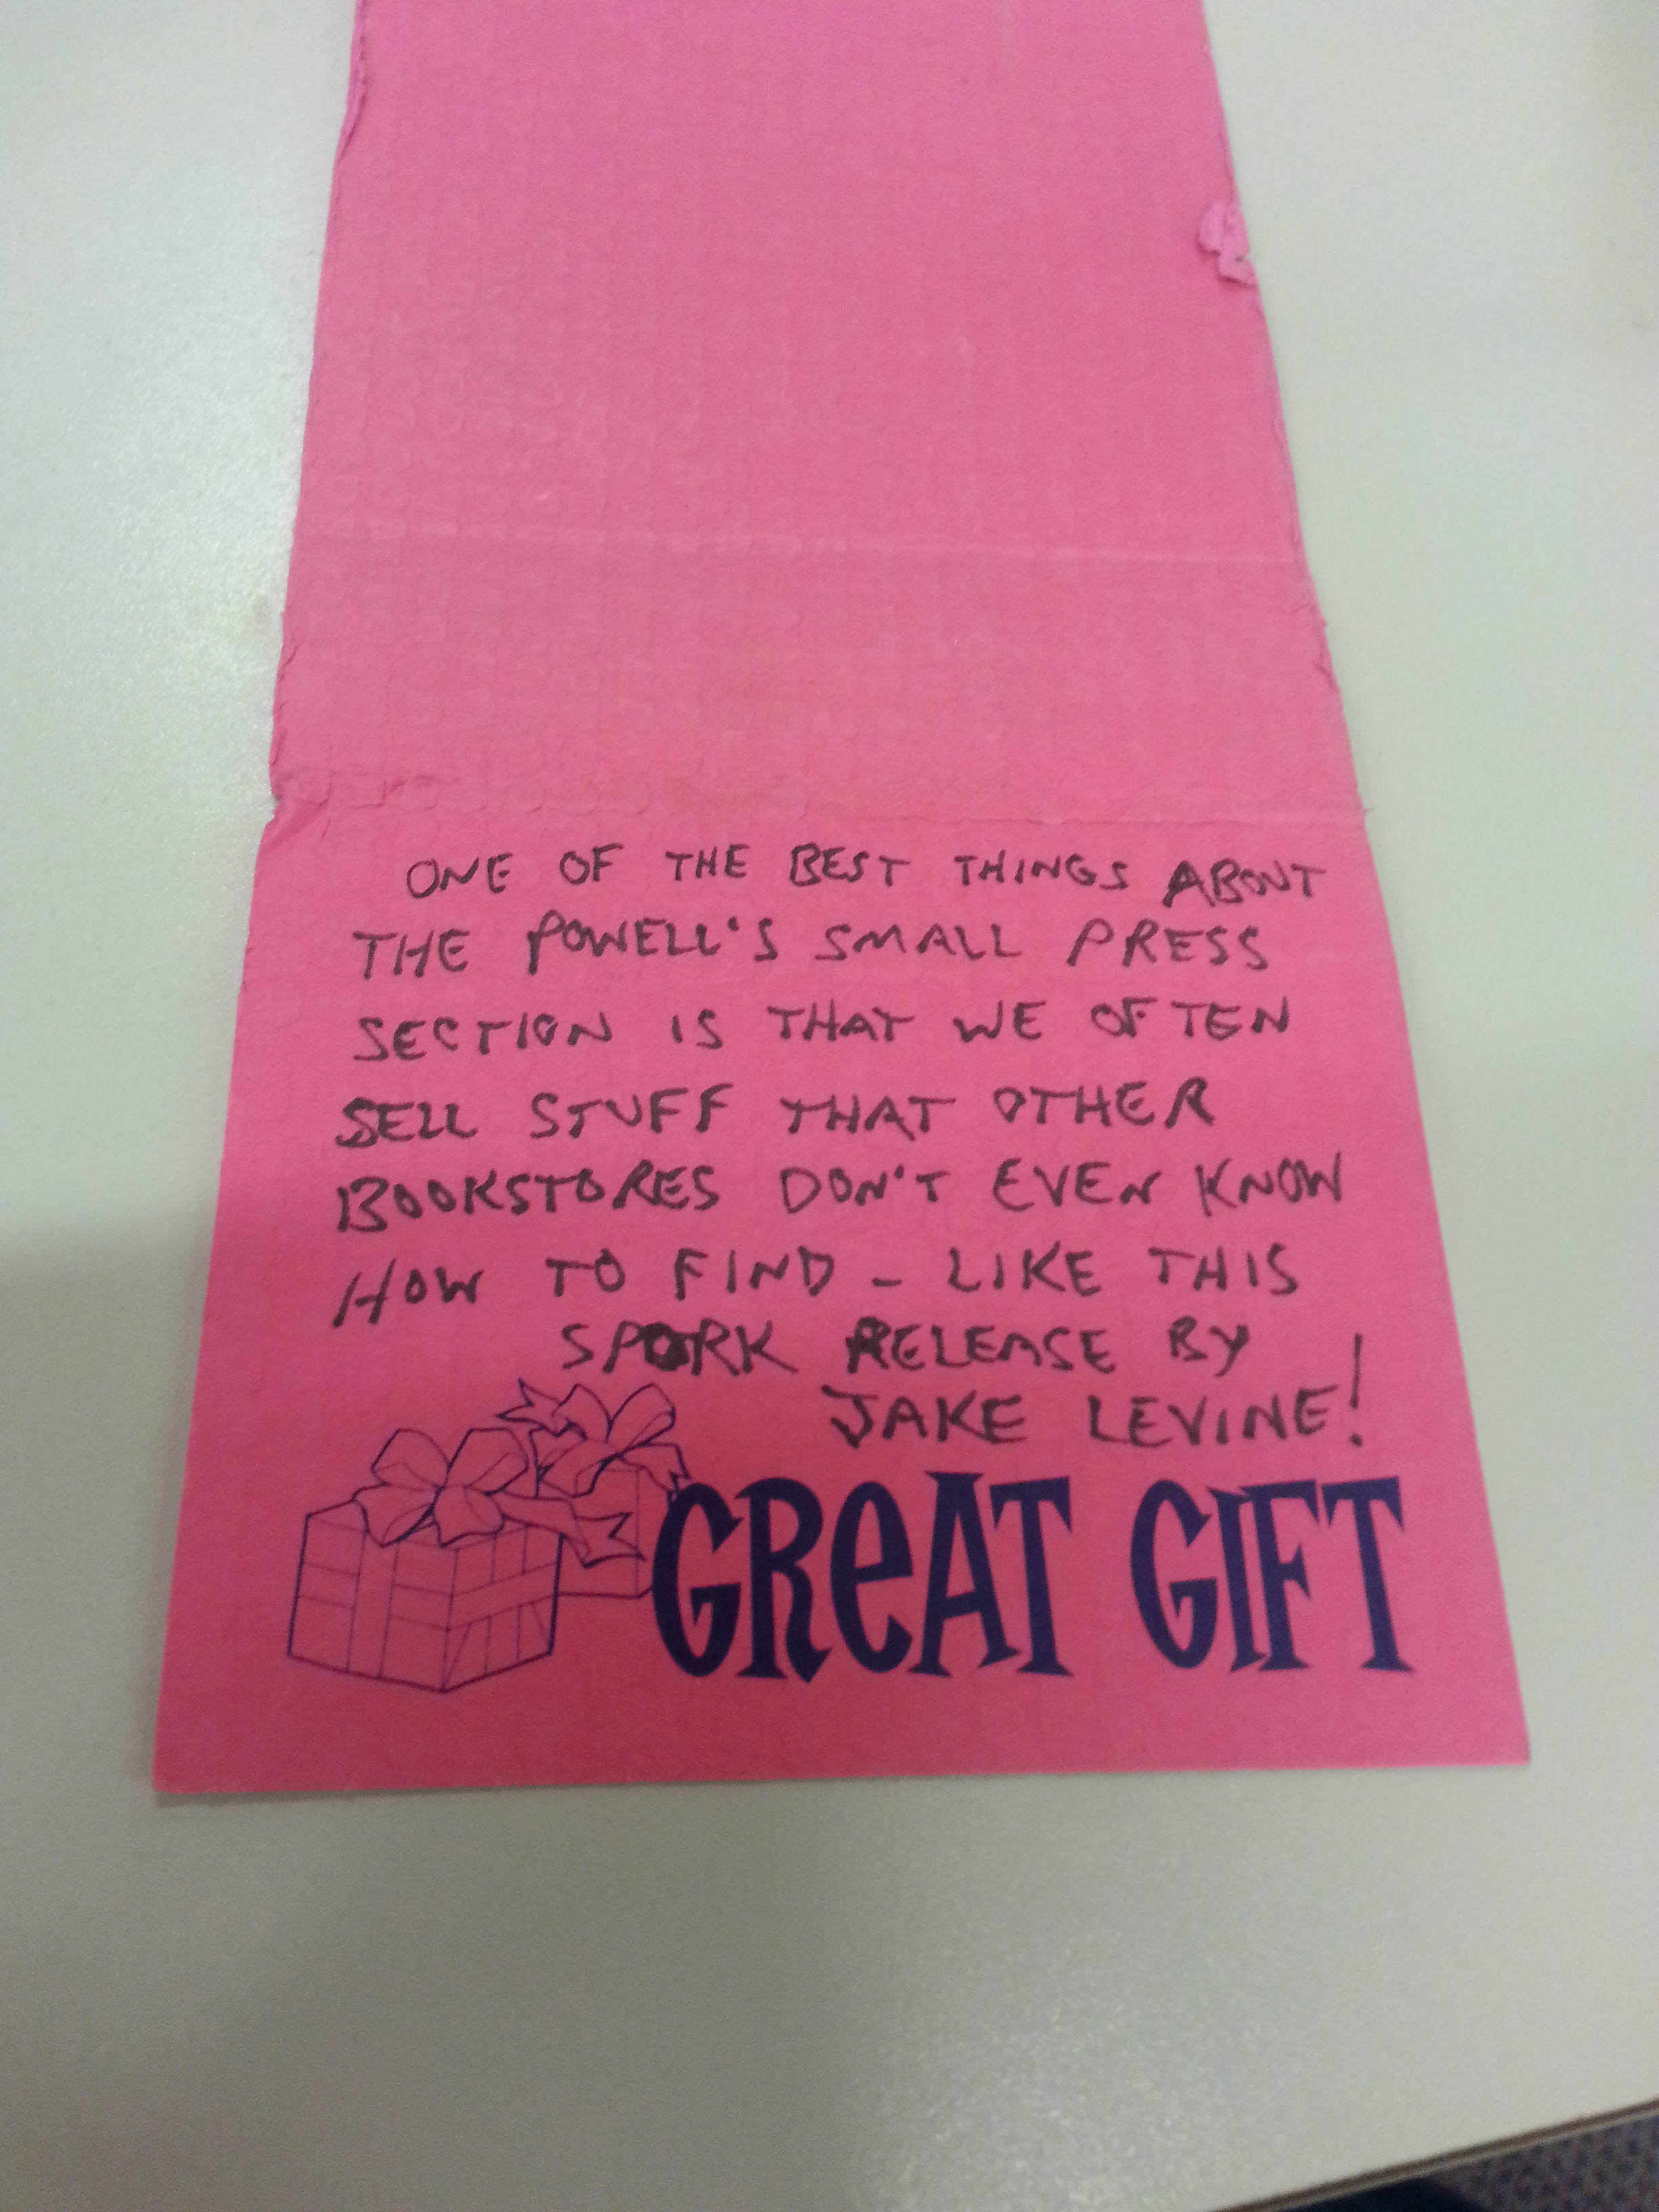 ONE OF THE BEST THINGS ABOUT
THE POWELL'S SMALL PRESS
SECTION IS THAT WE OFTEN
SELL STUFF THAT OTHER
BOOKSTORES DON'T EVEN KNOW
HOW TO FIND - LIKE THIS
SPORK RELEASE BY
JAKE LEVINE!
GReAT GIFT